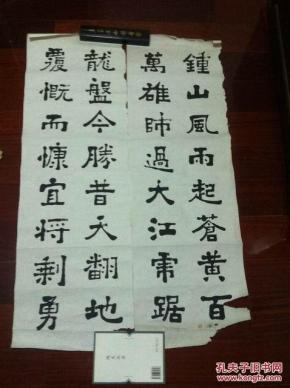 鍾山風雨起蒼黃百
萬雄師過大江虎踞
龍盤今勝昔天翻地
覆慨而慷宜将剩勇
孔夫子旧书网